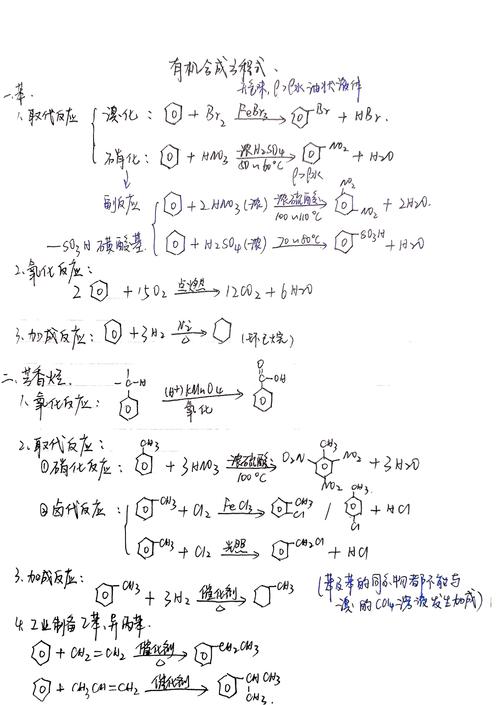 有机合成方程式、
无色味，ρ>ρ水 油状液体
一.苯.
1.取代反应 溴化： + Br2 FeBr3 → Br + HBr.
硝化： + HNO3 浓H2SO4 50~60℃ → NO2 + H2O
ρ>ρ水
副反应 + 2HNO3(浓) 浓硫酸 100~110℃ → NO2 NO2 + 2H2O.
—SO3H 磺酸基 + H2SO4(浓) 70~80℃ → SO3H + H2O
2.氧化反应：
2 + 15O2 点燃 → 12CO2 + 6H2O
3.加成反应： + 3H2 Ni △ → (环己烷)
二.芳香烃.
1.氧化反应： -C-H (H+)KMnO4 氧化 → O C-OH
2.取代反应：
①硝化反应： CH3 + 3HNO3 浓硫酸 100℃ → O2N CH3 NO2 NO2 + 3H2O
②卤代反应： CH3 + Cl2 FeCl3 → CH3 Cl / CH3 Cl + HCl
CH3 + Cl2 光照 → CH2Cl + HCl
3.加成反应： CH3 + 3H2 催化剂 △ → CH3
(苯及苯的同系物都不能与
溴的CCl4溶液发生加成)
4.工业制备乙苯、异丙苯.
+ CH2=CH2 催化剂 △ → CH2CH3
+ CH3CH=CH2 催化剂 → CHCH3 CH3.